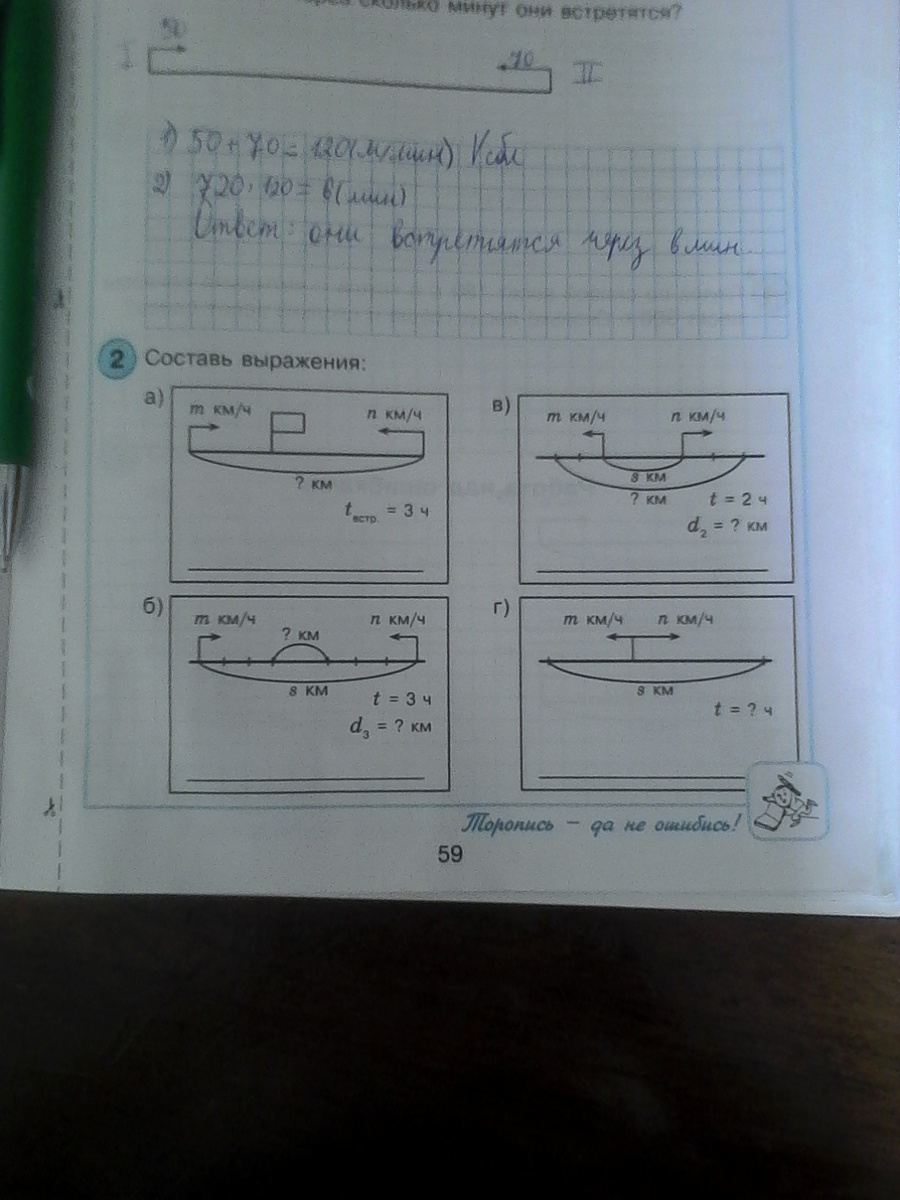 сколько минут они встретятся?
50
I
70
II
1) 50 + 70 = 120(м/мин) Vсбл
2) 720 : 120 = 6(мин)
Ответ: они встретятся через 6 мин.
2 Составь выражения:
а)
m км/ч n км/ч
? км
tвстр. = 3 ч
в)
m км/ч n км/ч
s км
? км t = 2 ч
d2 = ? км
б)
m км/ч n км/ч
? км
s км
t = 3 ч
d3 = ? км
г)
m км/ч n км/ч
s км
t = ? ч
Торопись – да не ошибись!
59